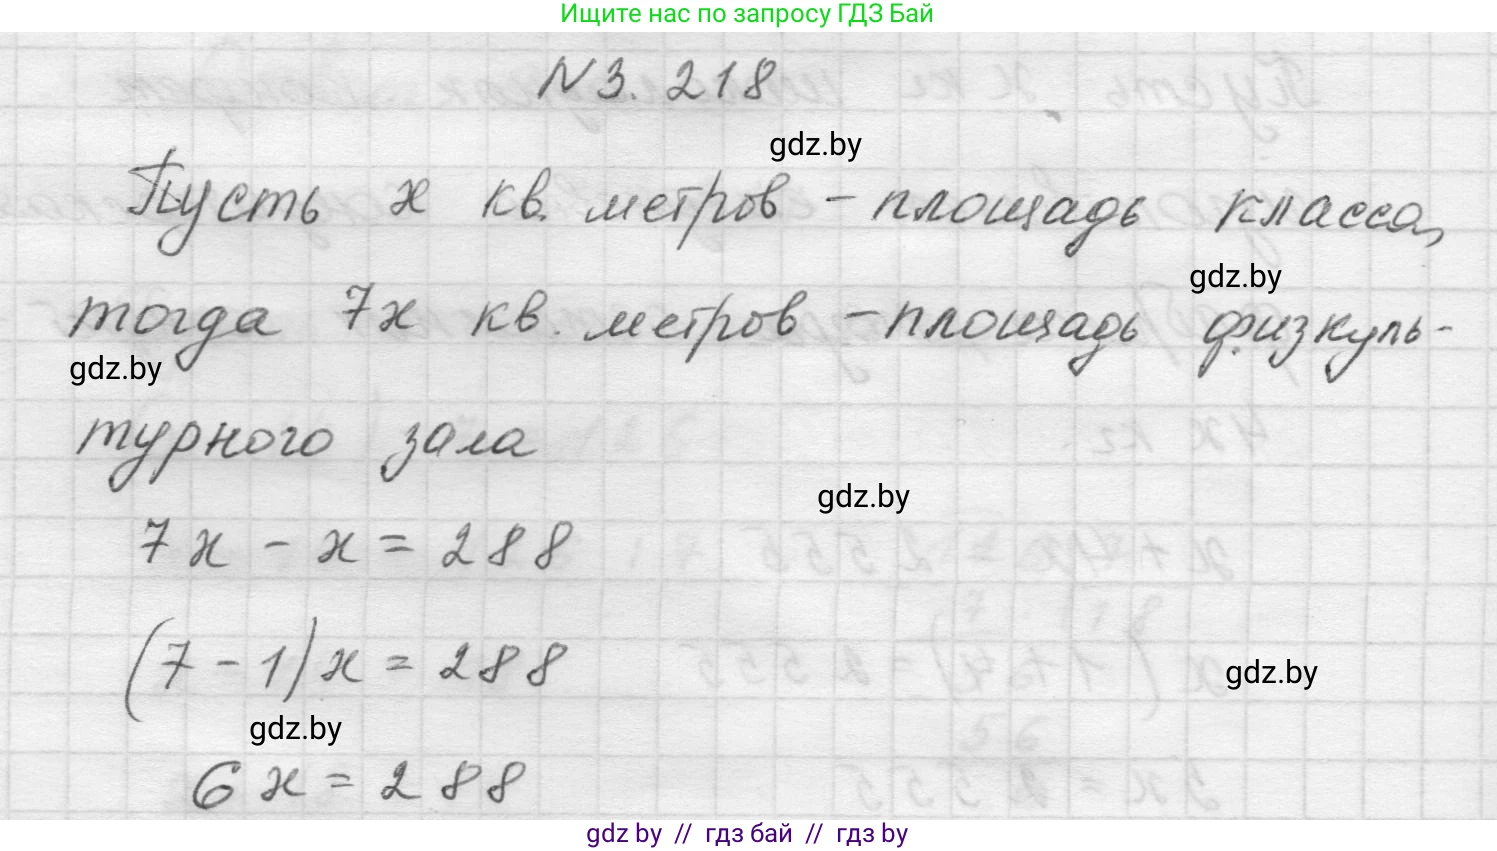 Ищите нас по запросу ГДЗ Бай
N 3.218
gdz.by
Пусть x кв. метров – площадь класса,
gdz.by
тогда 7x кв. метров – площадь физкуль-
gdz.by
турного зала
gdz.by
7x – x = 288
(7 – 1)x = 288
gdz.by
gdz.by
6x = 288
gdz by // гдз бай // гдз by